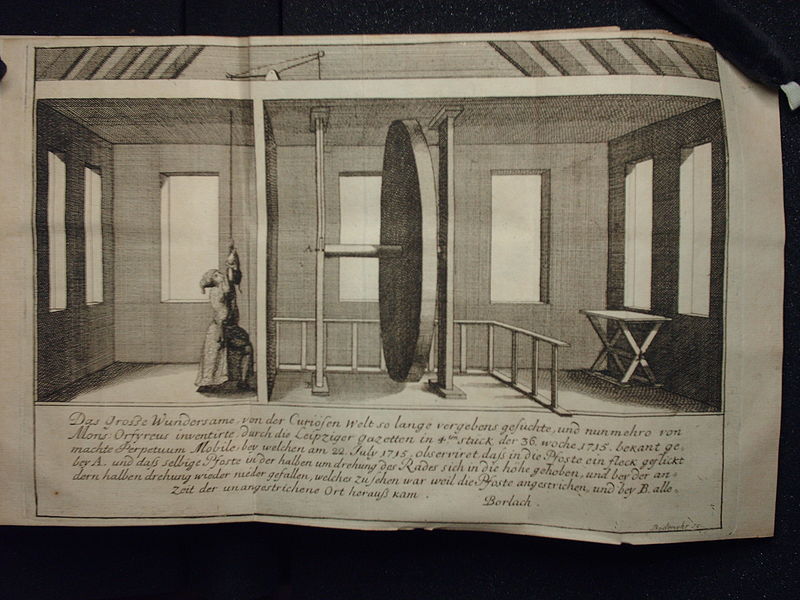 A
Das große Wundersame, von der Curiösen Welt so lange vergebens gesuchte, und nunmehro von
Mons: Orfyreus inventirte, durch die Leipziger gazetten in 4.ten stück der 36. woche 1715. bekant ge,
machte Perpetuum Mobile: bey welchen am 22. July 1715, observiret, daß in die Pfoste ein fleck geflückt
bey A, und daß selbige Pfoste in der halben um drehung des Rades sich in die höhe gehoben, und bey der an,
dern halben drehung wieder nieder gefallen, welches zu sehen war weil die Pfoste angestrichen, und bey B. alle,
zeit der unangestrichene Ort herauß kam.
Borlach.